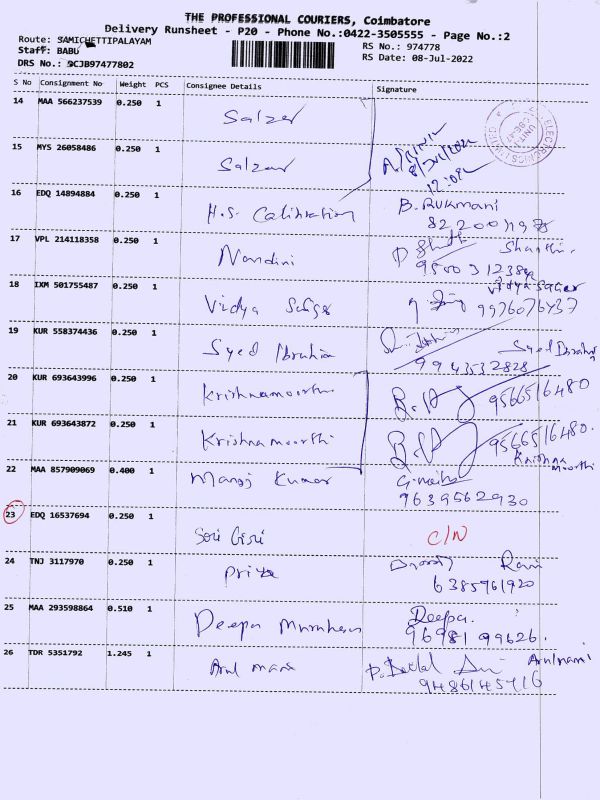 THE PROFESSIONAL COURIERS, Coimbatore
Delivery Runsheet - P20 - Phone No.:0422-3505555 - Page No.:2
Route: SAMICHETTIPALAYAM
RS No.: 974778
Staff: BABU
RS Date: 08-Jul-2022
DRS No.: SCJB97477802
S No Consignment No Weight PCS Consignee Details Signature
14 MAA 566237539 0.250 1 Salzer
15 MYS 26058486 0.250 1 Salzer
16 EDQ 14894884 0.250 1 H.S. Calibration B. Rukmani
17 VPL 214118358 0.250 1 Nandini Shanthi
18 IXM 501755487 0.250 1 Vidya Sagar Vidya Sagar
9976076437
19 KUR 558374436 0.250 1 Syed Ibrahim Syed Ibrahim
9943532828
20 KUR 693643996 0.250 1 Krishnamoorthi
9566516480
21 KUR 693643872 0.250 1 Krishnamoorthi
9566516480.
Krishna
moorthi
22 MAA 857909069 0.400 1 Manoj Kumar
9639562930
23 EDQ 16537694 0.250 1 Sori Giri C/N
24 TNJ 3117970 0.250 1 Priya
6385961920
25 MAA 293598864 0.510 1 Deepa Deepa.
96981 99626.
26 TDR 5351792 1.245 1 Arul mani Arulmani